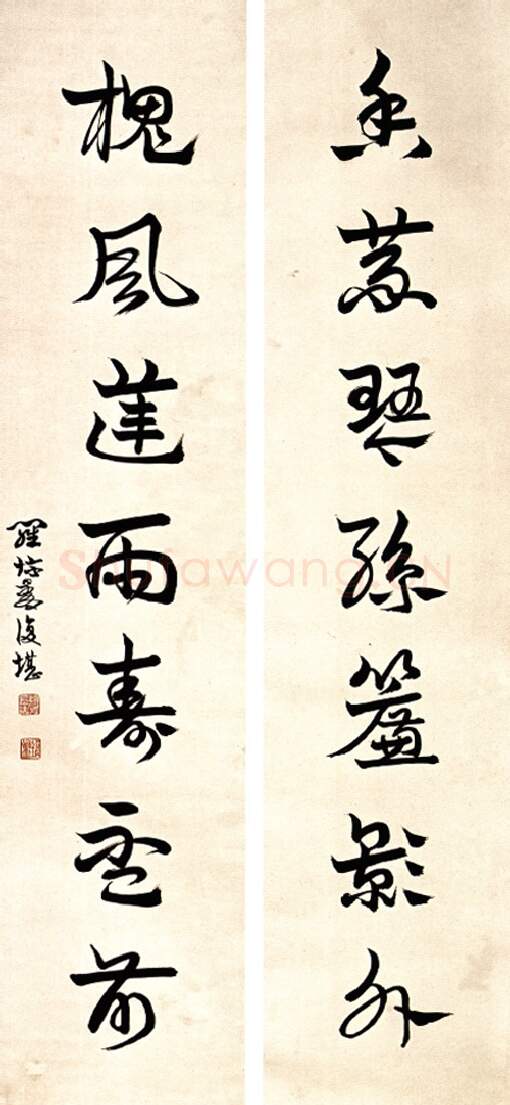 香篆琴絲簾影外
槐風蓮雨壽盃前
羅惇㬊復堪
Shufawang.CN